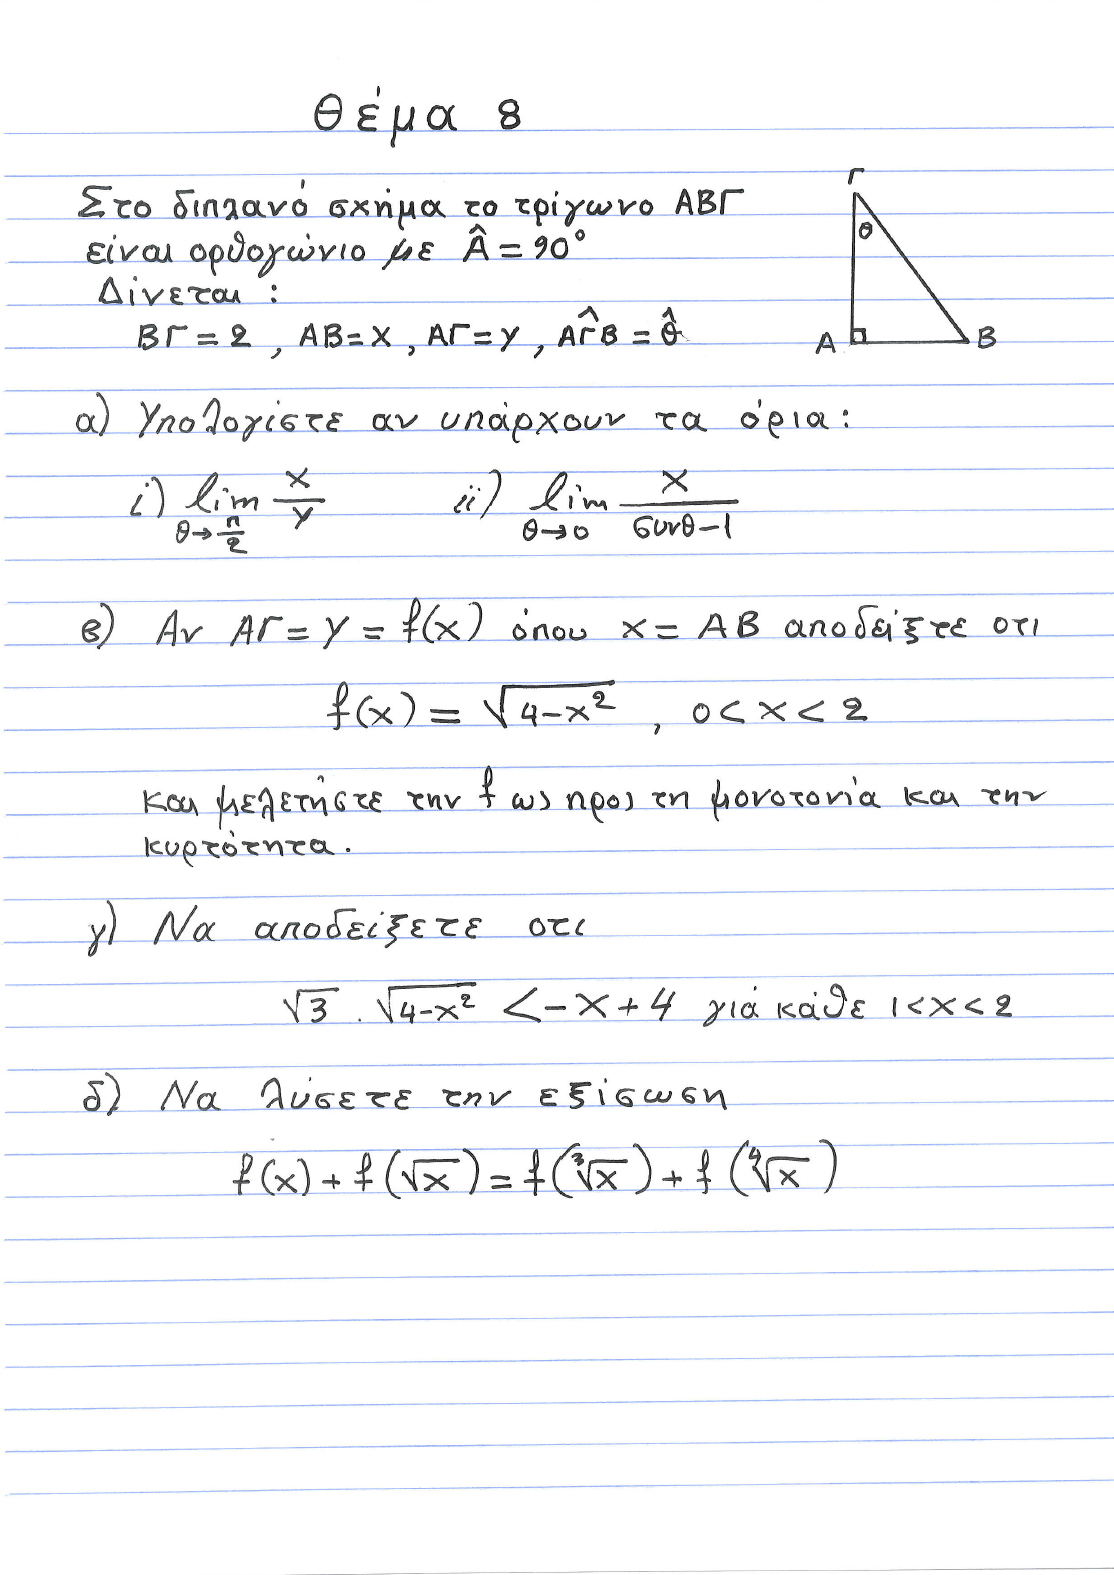 Θέμα 8
Στο διπλανό σχήμα το τρίγωνο ΑΒΓ
είναι ορθογώνιο με Â = 90°
Δίνεται :
ΒΓ = 2 , ΑΒ = x , ΑΓ = y , ΑΓ̂Β = θ̂
Γ
θ
Α
Β
α) Υπολογίστε αν υπάρχουν τα όρια :
i) lim θ→π/2 x/y ii) lim θ→0 x/(συνθ-1)
β) Αν ΑΓ = y = f(x) όπου x = ΑΒ αποδείξτε οτι
f(x) = √(4-x²) , 0 < x < 2
και μελετήστε την f ως προς τη μονοτονία και την
κυρτότητα.
γ) Να αποδείξετε οτι
√3 . √(4-x²) < -x + 4 γιά κάθε 1 < x < 2
δ) Να λύσετε την εξίσωση
f(x) + f(√x) = f(∛x) + f(∜x)